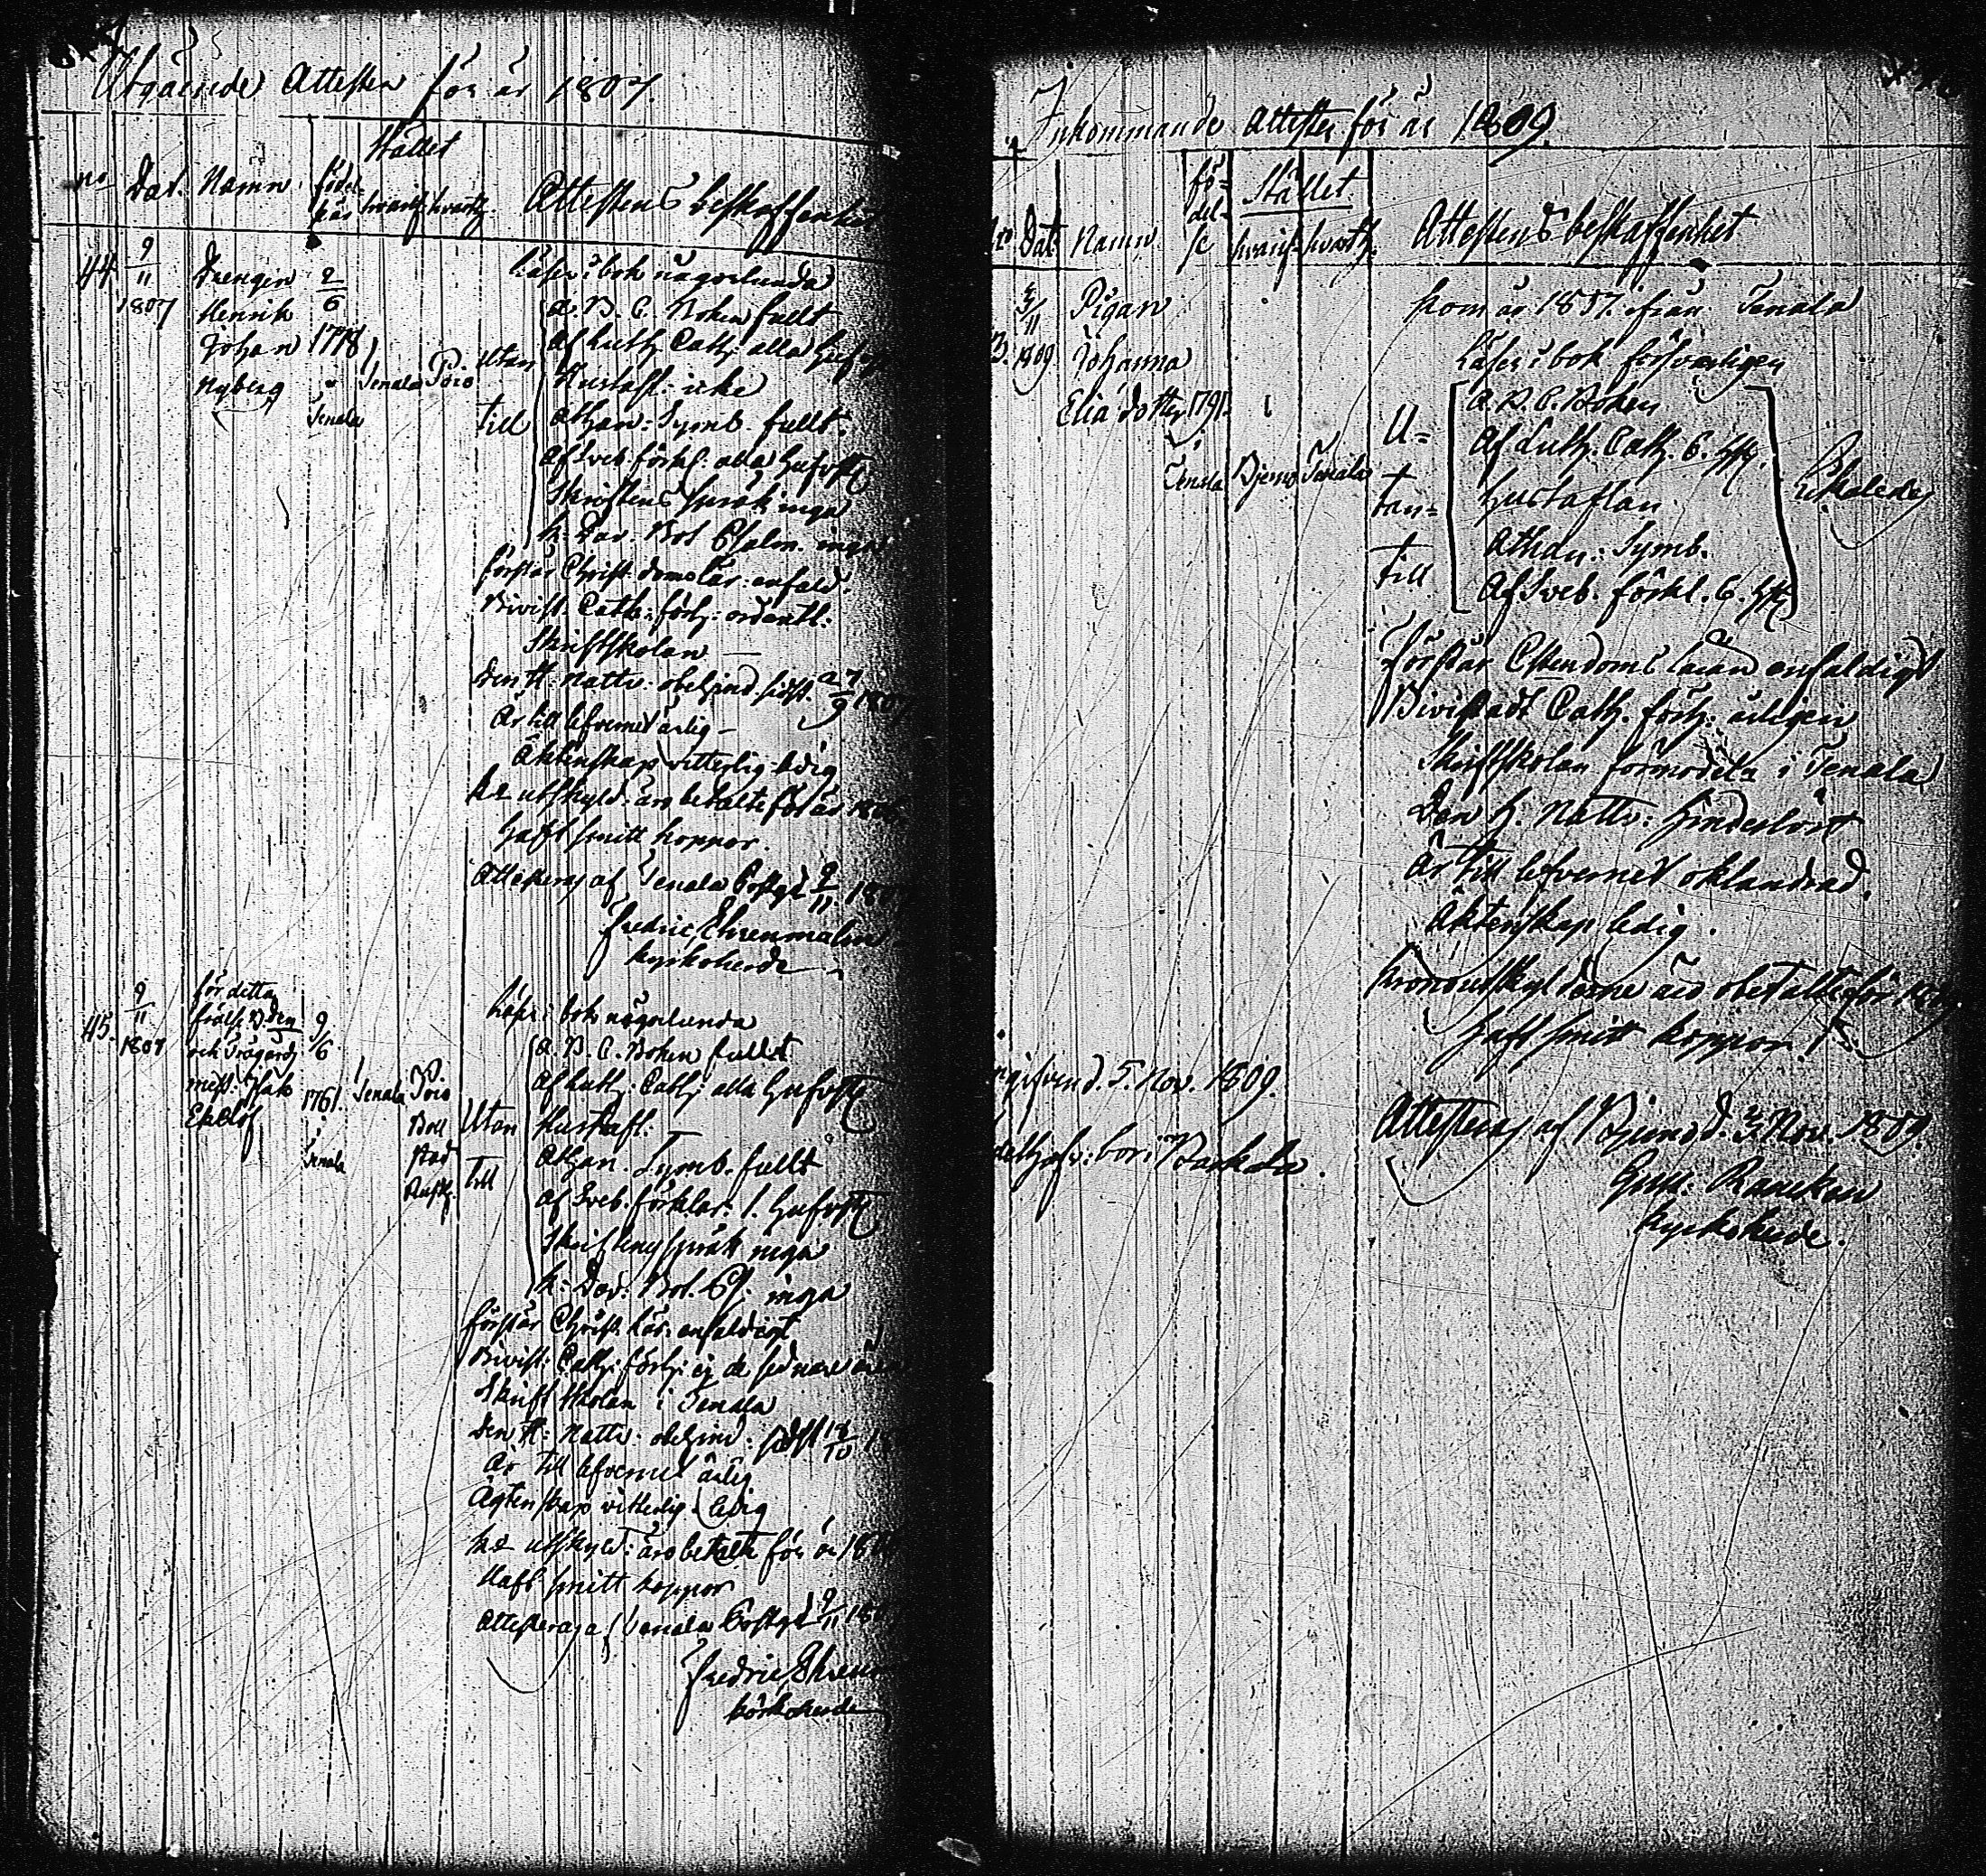 Utgående Attester för år 1807.
Stället
no Dat. Namn. födel: hvarif. hvarth. Attestens beskaffenhet
44. 9/11 1807 Drengen Henrik Johan Nyberg
2/6 1778 Tenala
Tenala Poio
Läser i bok någorlunda
Utan till
A. B. C. Boken fullt
Af Luth. Cath: alla Hufvst
Hustafl: icke
Athan: Symb. fullt.
Af Sveb. förkl. alla Hufvst
Skriftens språk inga
K: Dav. Bot Psalm. inga
förstår Christ: doms lär: enfald.
Bivist. Cath: förh: ordentl.
Skriftskolan —
Den H: Nattv: obehind sidst. 27/9 1807
Är till lefvernet ärlig —
Äktenskap vitterlig ledig
Kr utskyld: äro betalte för år 1806
Haft smitt koppor.
Attesteras af Tenala Prestgd 9/11 1807
Fredric Ehrenmalm
kyrkoherde
45. 9/11 1807 för detta
och Trägårds
mest. Jak
Ekelöf
9/6 1761. Tenala
Tenala Poio
Boll
stad
Rusth.
Läser i bok någorlunda
Utan till
A. B. C. Boken fullt
Af Luth: Cath: alla Hufvst
Hustafl:
Athan. Symb. fullt
Af Sveb. förklar: 1. Hufvst
Skriftens språk inga
K: Dav: Bot. Ps: inga
förstår Christ: lär: enfaldigt
Bivist: Cath: förh: ej de sednare åren
Skrift skolan i Tenala
Den H: Nattv: obehind: sidst 18/10
Är till lefvernet ärlig
Ägtenskap vitterlig ledig
Kr utskyld: äro betalte för år
Haft smitt koppor
Attesteras af Tenala Prestgd 9/11
Fredric Ehren
kyrkoherde
Inkommande Attester för år 1809.
födelse Stället
Dat: Namn hvarif: hvarth: Attestens beskaffenhet
3/11 1809. Pigan
Johanna
Elia dotter 1791.
Tenala Bjerno Tenala
kom år 1807. ifrån Tenala
Läser i bok försvarligen
U=
tan=
till
A. B. C. Boken
Af Luth. Cath. 6. Hst.
Hustaflan.
Athan: Symb.
Af Sveb. förkl. 6. Hst
förstår Christendoms läran enfaldigt
Bivistadt Cath. förh: årligen
Skriftskolan förmodeln i Tenala
Den H. Nattv: hinderlöst
Är till lefvernet oklandrad.
Äktenskap ledig.
Kronoutskylderne äro obetalte för
haft smitt koppor.
ingifven d. 5. Nov. 1809.
Attesteras af Bjerno d. 3. Nov. 1809.
Gust. Rancken
kyrkoherde.